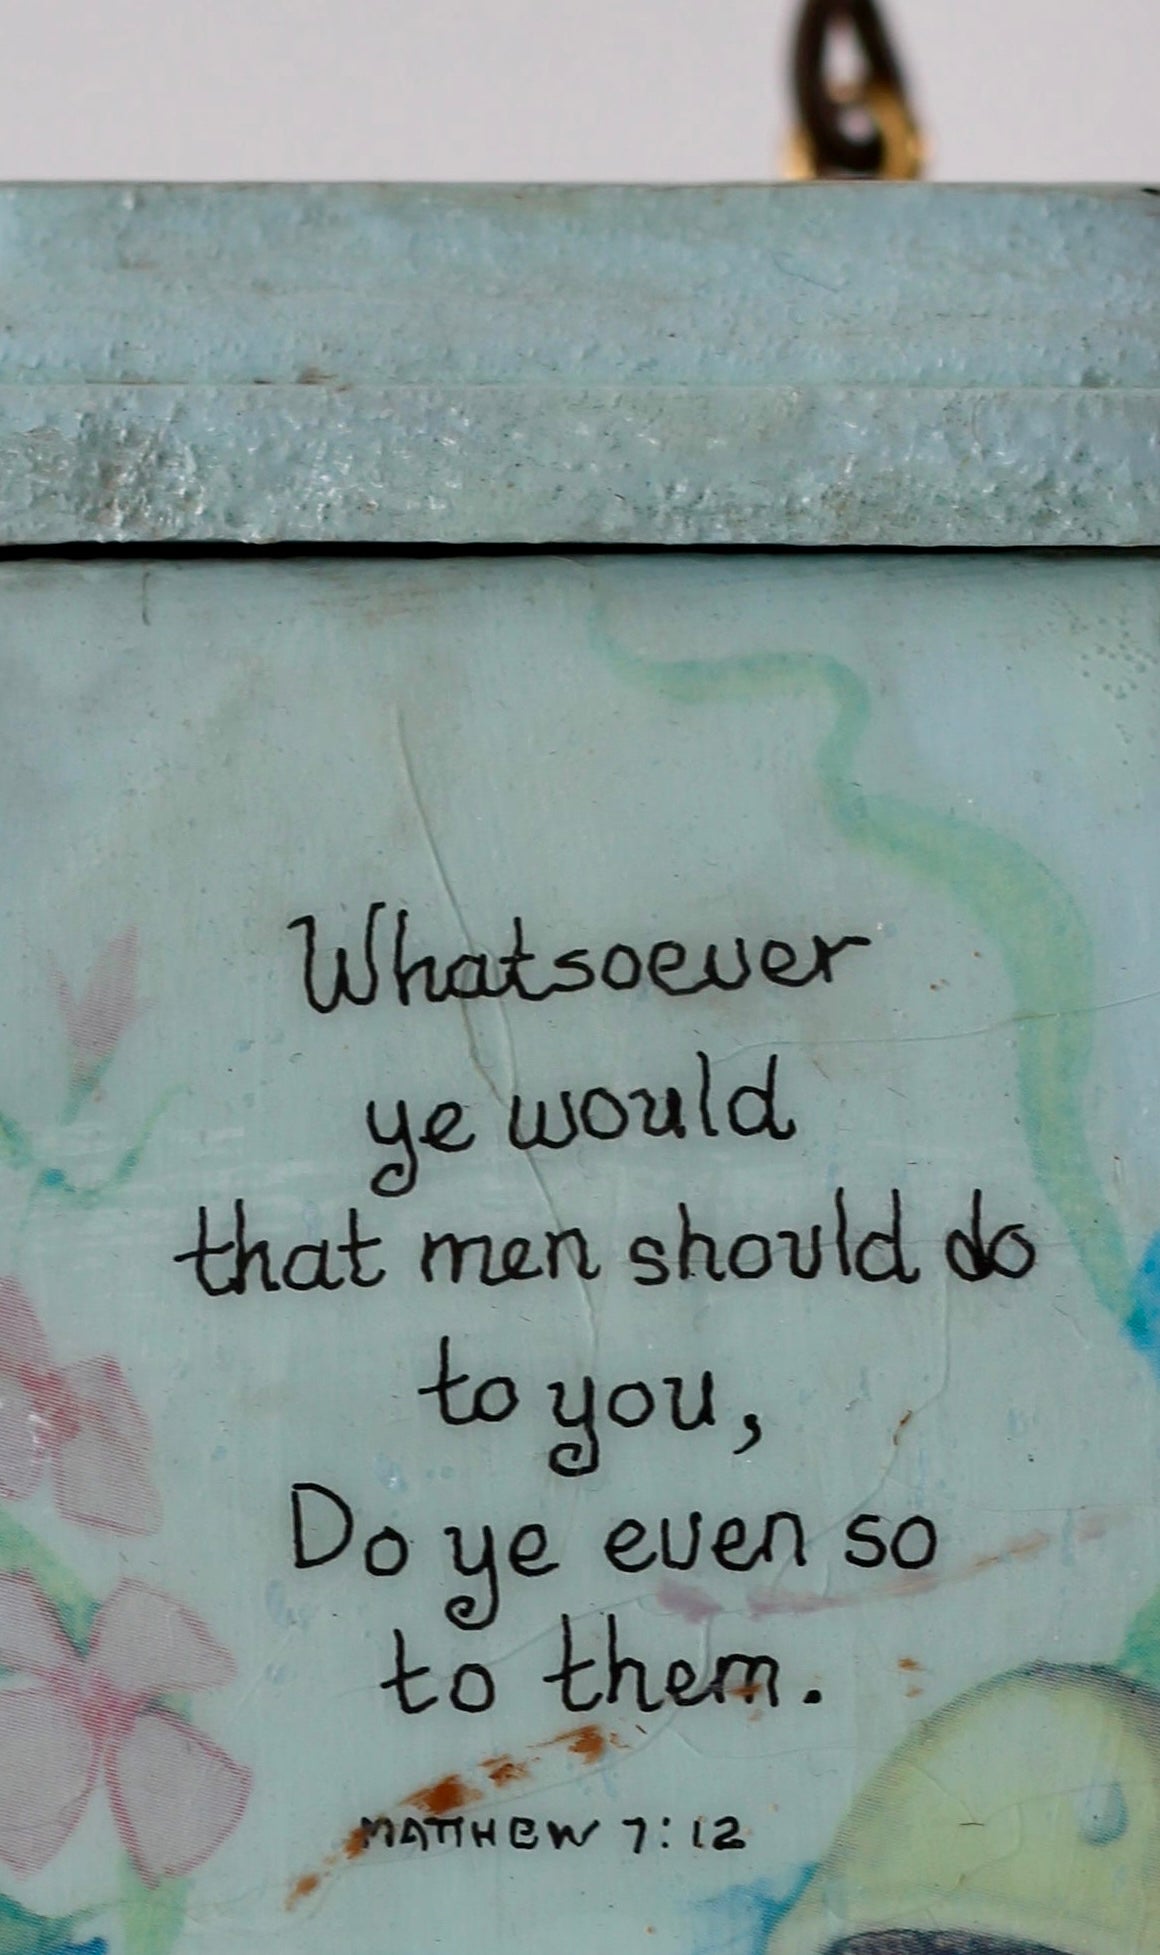 Whatsoever
ye would
that men should do
to you,
Do ye even so
to them.
MATTHEW 7:12